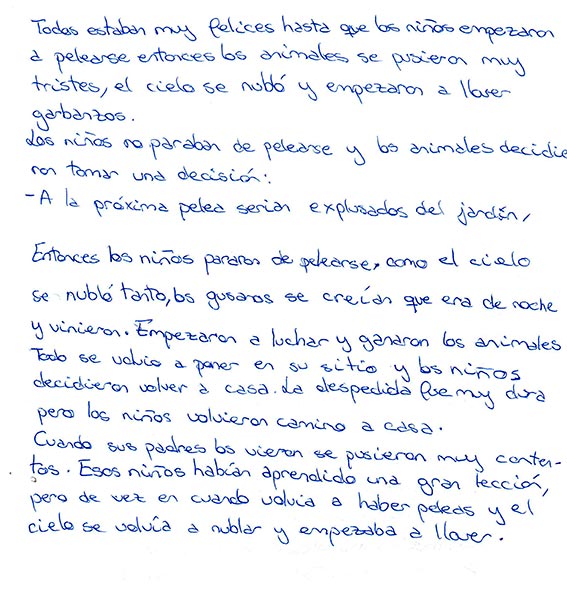 Todos estaban muy felices hasta que los niños empezaron
a pelearse entonces los animales se pusieron muy
tristes, el cielo se nubló y empezaron a llover
garbanzos.
Los niños no paraban de pelearse y los animales decidie
ron tomar una decisión:
- A la próxima pelea serian explusados del jardín,
Entonces los niños pararon de pelearse, como el cielo
se nubló tanto, los gusanos se creían que era de noche
y vinieron. Empezaron a luchar y ganaron los animales
Todo se volvio a poner en su sitio y los niños
decidieron volver a casa. La despedida fue muy dura
pero los niños volvieron camino a casa.
Cuando sus padres los vieron se pusieron muy conten-
tos. Esos niños habían aprendido una gran lección,
pero de vez en cuando volvia a haber peleas y el
cielo se volvía a nublar y empezaba a llover.